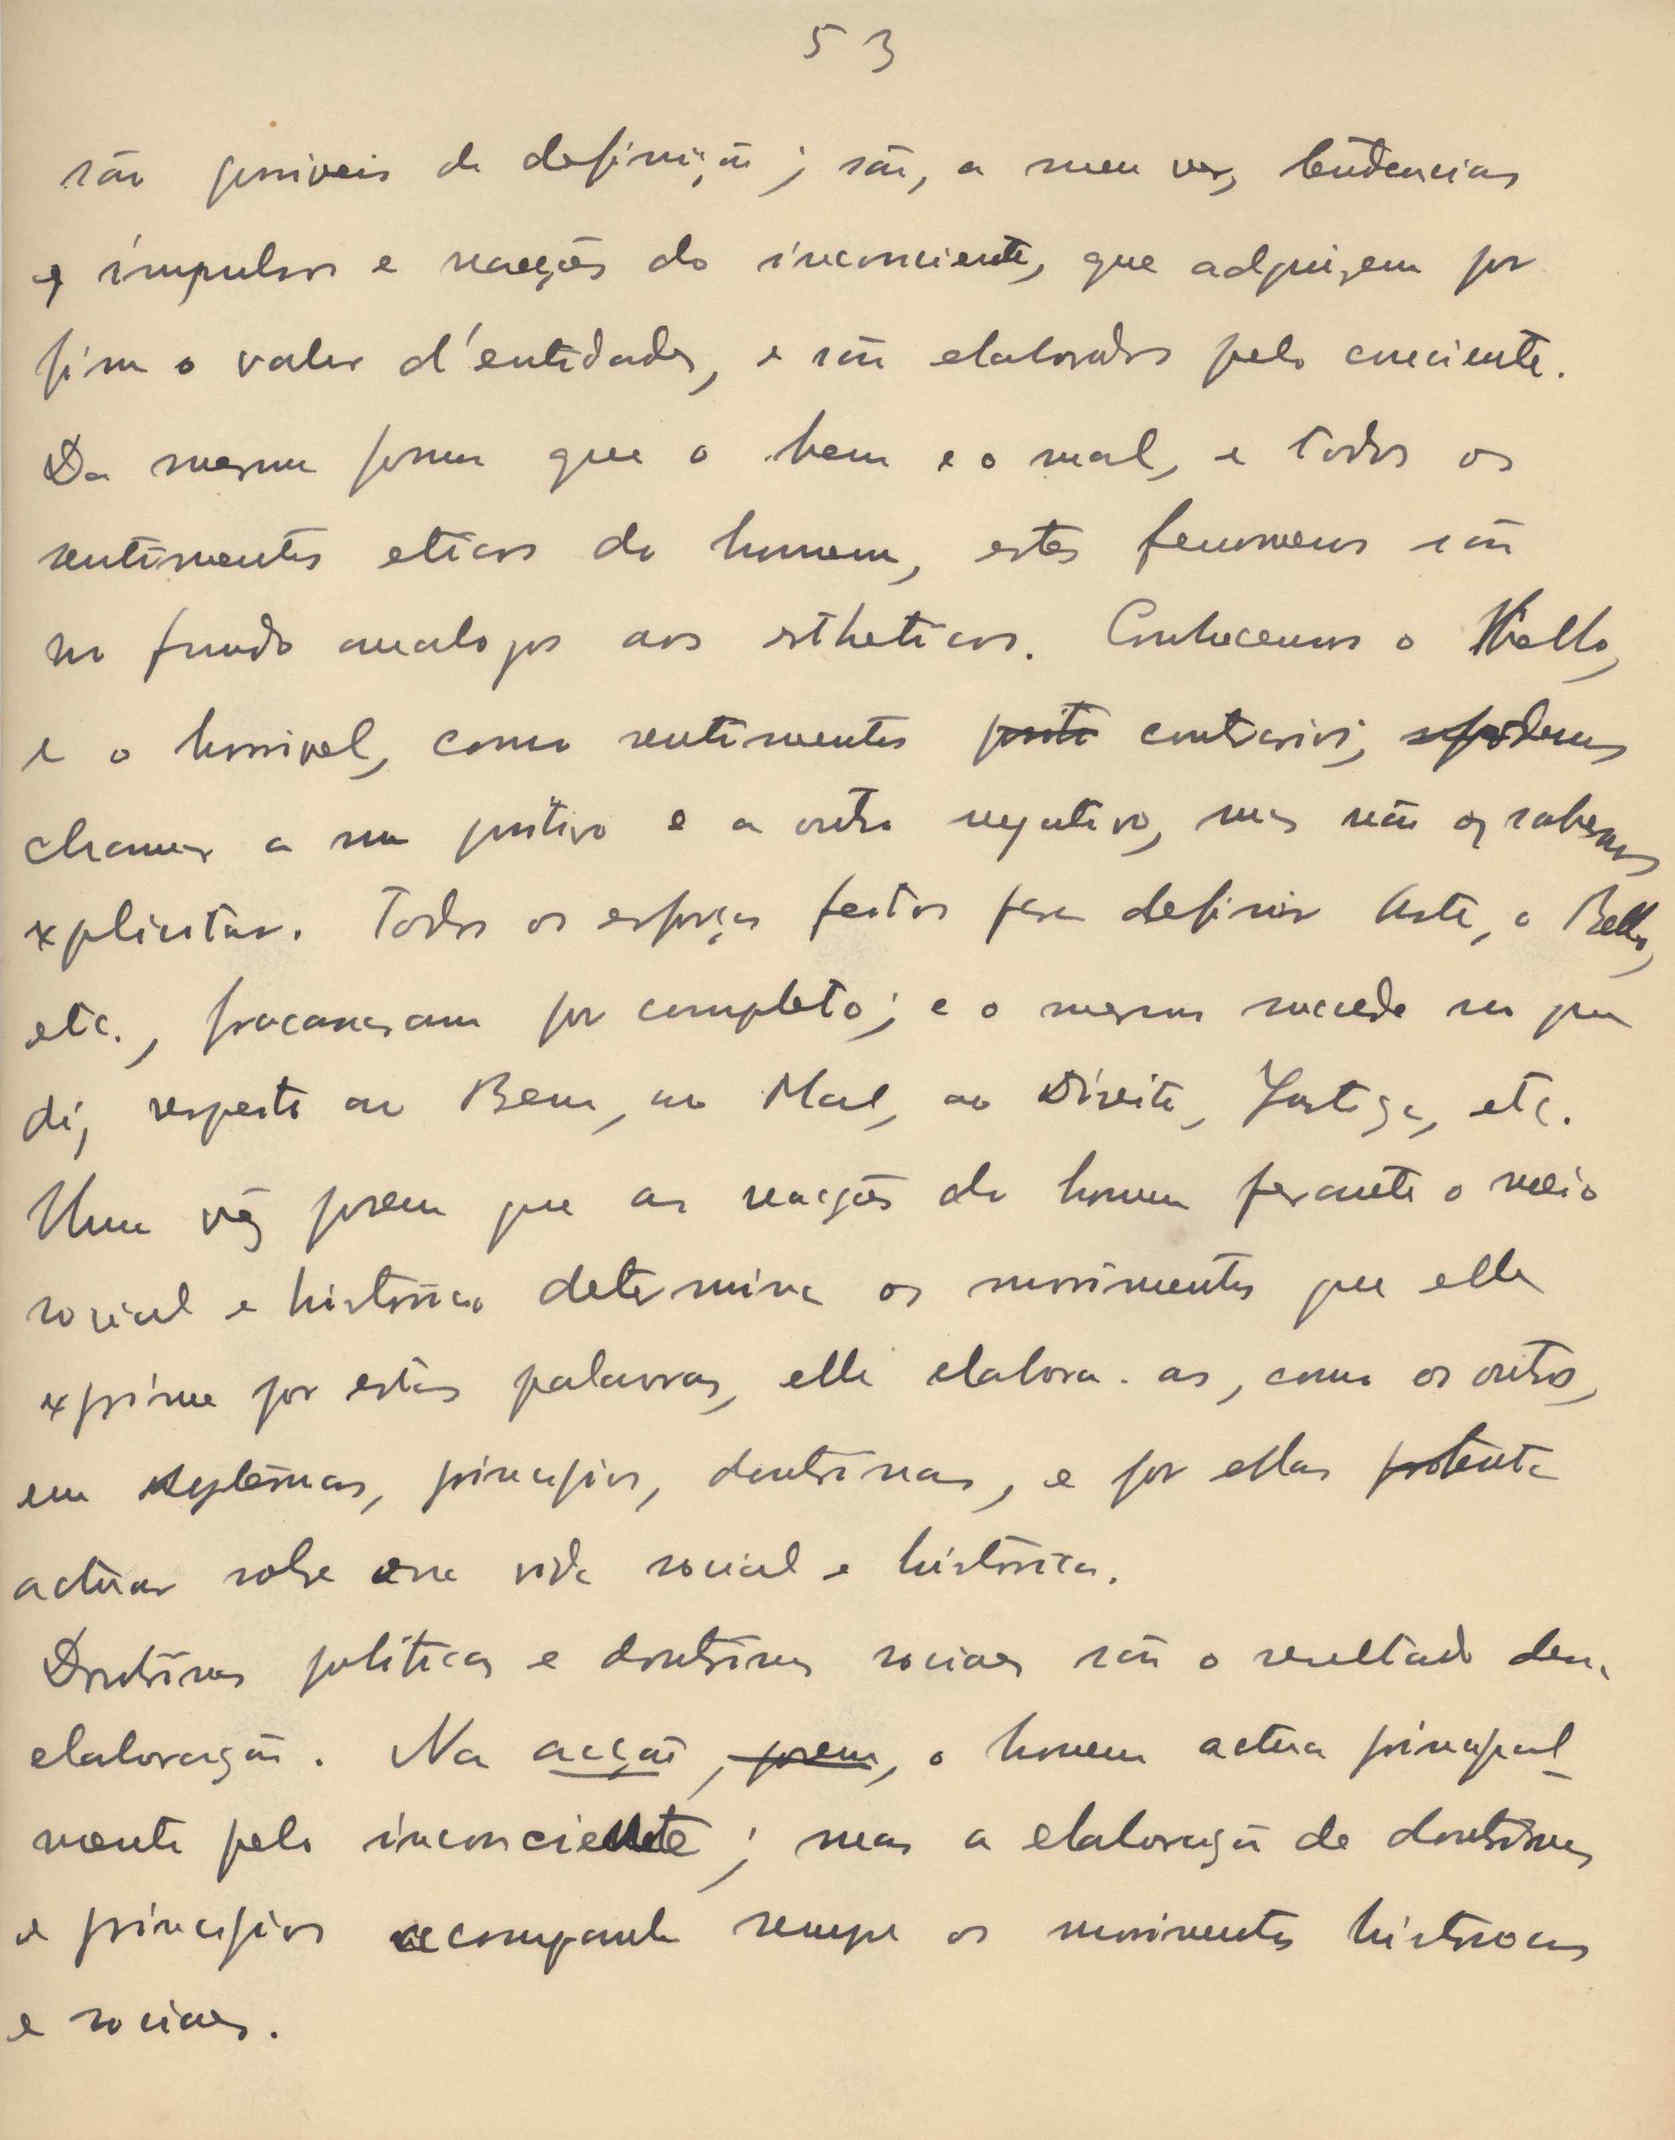 53
são possiveis de definição; são, a meu ver, tendencias
e impulsos e reacções do inconciente, que adquirem por
fim o valor d'entidades, e são elaborados pelo conciente.
Da mesma forma que o bem e o mal, e todos os
sentimentos eticos do homem, estes fenomenos são
no fundo analogos aos estheticos. Conhecemos o Bello,
e o horrivel, como sentimentos posito contrarios; podemos
chamar a um positivo e a outro negativo, mas não os sabemos
explicitar. Todos os esforços feitos para definir Arte, o Bello,
etc., fracassaram por completo; e o mesmo succede no que
diz respeito ao Bem, ao Mal, ao Direito, Justiça, etc.
Uma vez porem que as reacções do homem perante o meio
social e historico determina os movimentos que elle
exprime por estas palavras, elle elabora-as, como os outros,
em systemas, principios, doutrinas, e por ellas tenta
actuar sobre essa vida social e historica.
Doutrinas politicas e doutrinas sociaes são o resultado dessa
elaboração. Na acção, porem, o homem actua principal-
mente pelo inconciente; mas a elaboração de doutrinas
e principios acompanha sempre os movimentos historicos
e sociaes.